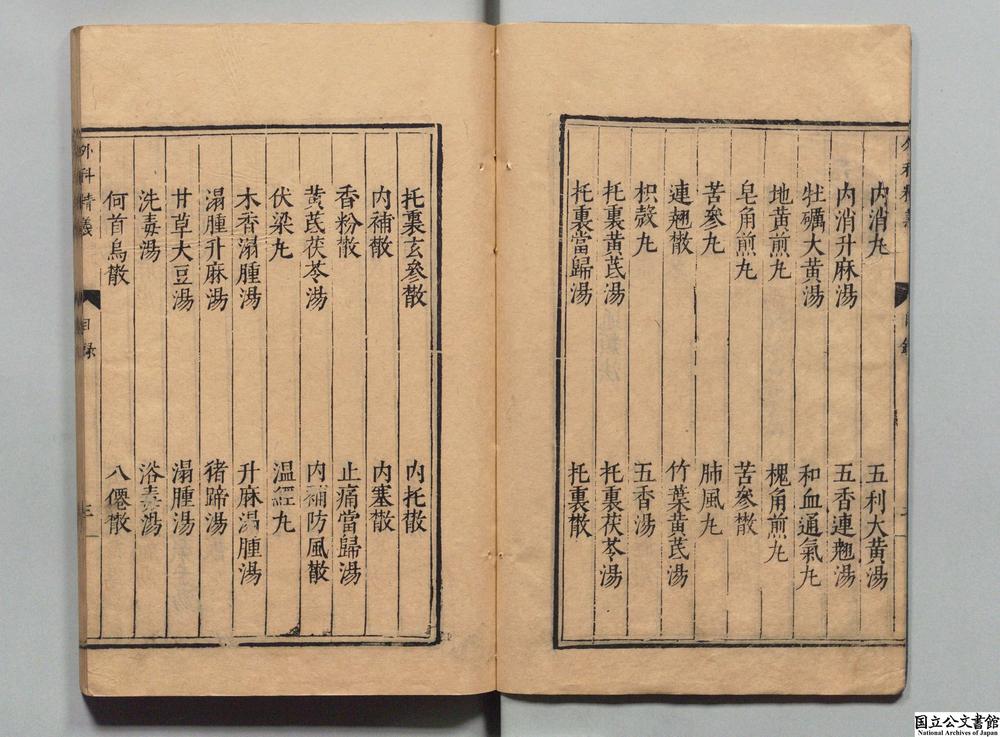 内消丸 五利大黄湯
内消升麻湯 五香連翹湯
牡礪大黄湯 和血通氣丸
地黄煎丸 槐角煎丸
皂角煎丸 苦參散
苦參丸 肺風丸
連翹散 竹葉黄芪湯
枳殼丸 五香湯
托裏黄芪湯 托裏茯苓湯
托裏當歸湯 托裏散
托裏玄參散 内托散
内補散 内塞散
香粉散 止痛當歸湯
黄芪茯苓湯 内補防風散
伏梁丸 温經丸
木香溻腫湯 升麻溻腫湯
溻腫升麻湯 猪蹄湯
甘草大豆湯 溻腫湯
洗毒湯 浴毒湯
何首烏散 八僊散
外科精義 目録 三
国立公文書館
National Archives of Japan